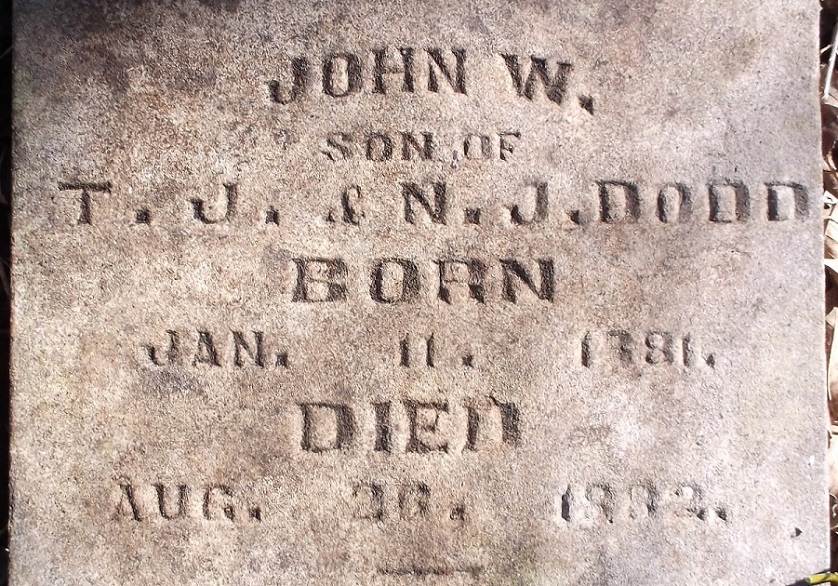 JOHN W.
SON OF
T. J. & N. J. DODD
BORN
JAN. 11. 1881.
DIED
AUG. 26. 1882.